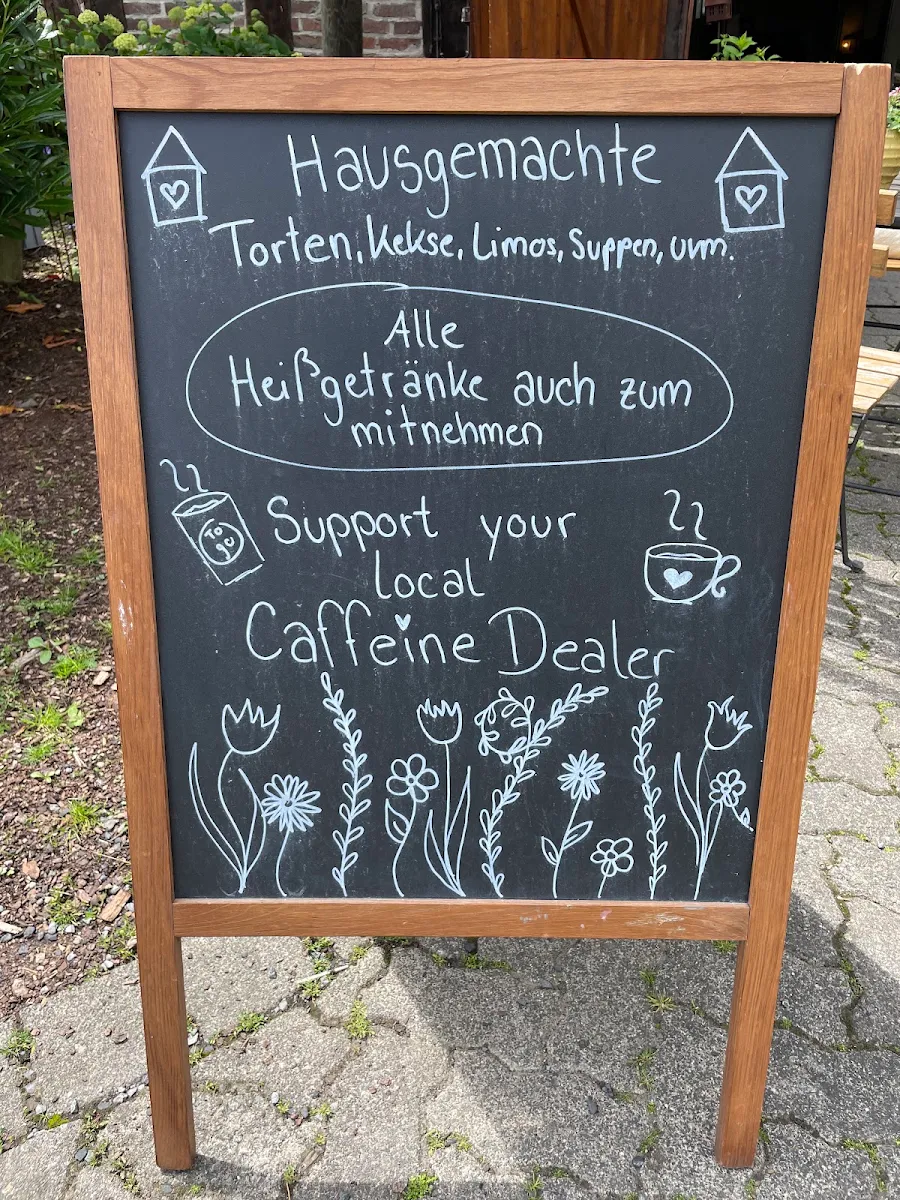 Hausgemachte
Torten, Kekse, Limos, Suppen, uvm.
Alle
Heißgetränke auch zum
mitnehmen
TO
GO
Support your
local
Caffeine Dealer